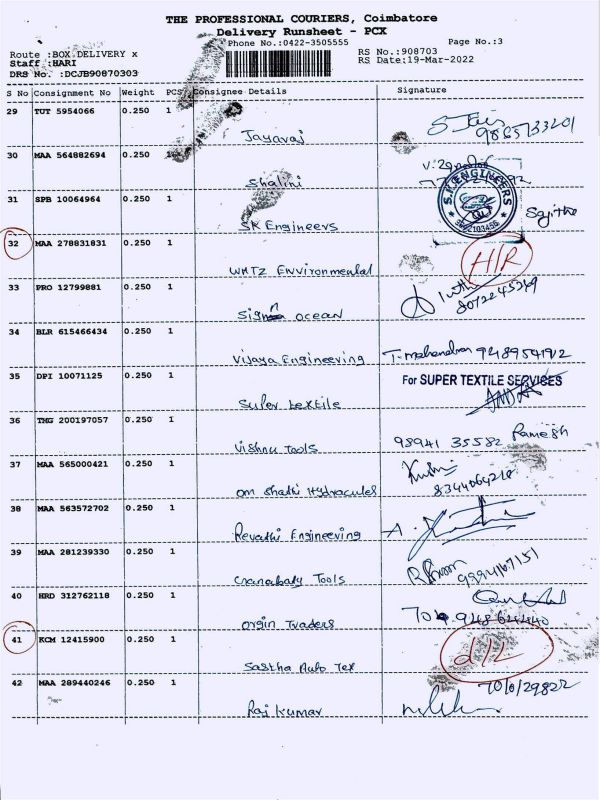 THE PROFESSIONAL COURIERS, Coimbatore
Delivery Runsheet - PCX
Phone No.:0422-3505555
Page No.:3
Route :BOX DELIVERY x
Staff :HARI
DRS No. :DCJB90870303
RS No.:908703
RS Date:19-Mar-2022
S No Consignment No Weight PCS Consignee Details Signature
29 TUT 5954066 0.250 1
Jayaraj
30 MAA 564882694 0.250
Shalini
31 SPB 10064964 0.250 1
SK Engineers S.K.ENGINEERS
32 MAA 278831831 0.250 1
WHTZ Environmental H/R
33 PRO 12799881 0.250 1
Sign ocean
34 BLR 615466434 0.250 1
Vijaya Engineering T-mahendran
35 DPI 10071125 0.250 1 For SUPER TEXTILE SERVICES
Super textile
36 TMG 200197057 0.250 1
Vishnu Tools 98941 35582 Ramesh
37 MAA 565000421 0.250 1
om Shakti Hydracules 8344064218
38 MAA 563572702 0.250 1
Revathi Engineering
39 MAA 281239330 0.250 1
Tools
40 HRD 312762118 0.250 1
Orgin Traders
41 KCM 12415900 0.250 1
Sastha Auto Tex d/L
42 MAA 289440246 0.250 1
Raj kumar